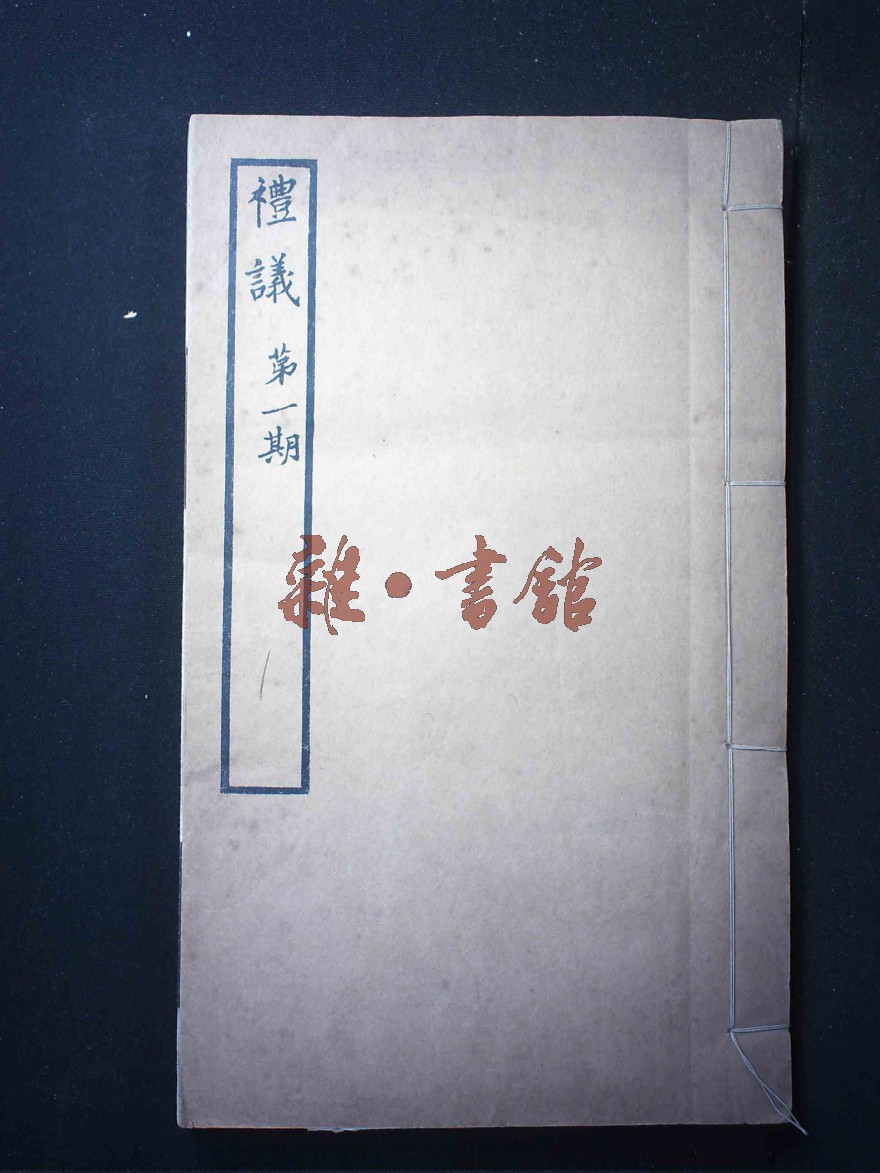 禮議 第一期
雜·書館